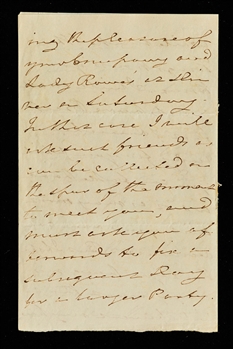 ing the pleasure of
your company and
Lady Rowe's at din
ner on Saturday.
In that case I will
ask such friends as
can be collected on
the spur of the moment
to meet you, and
must ask you af
terwards to fix a
subsequent day
for a larger Party.